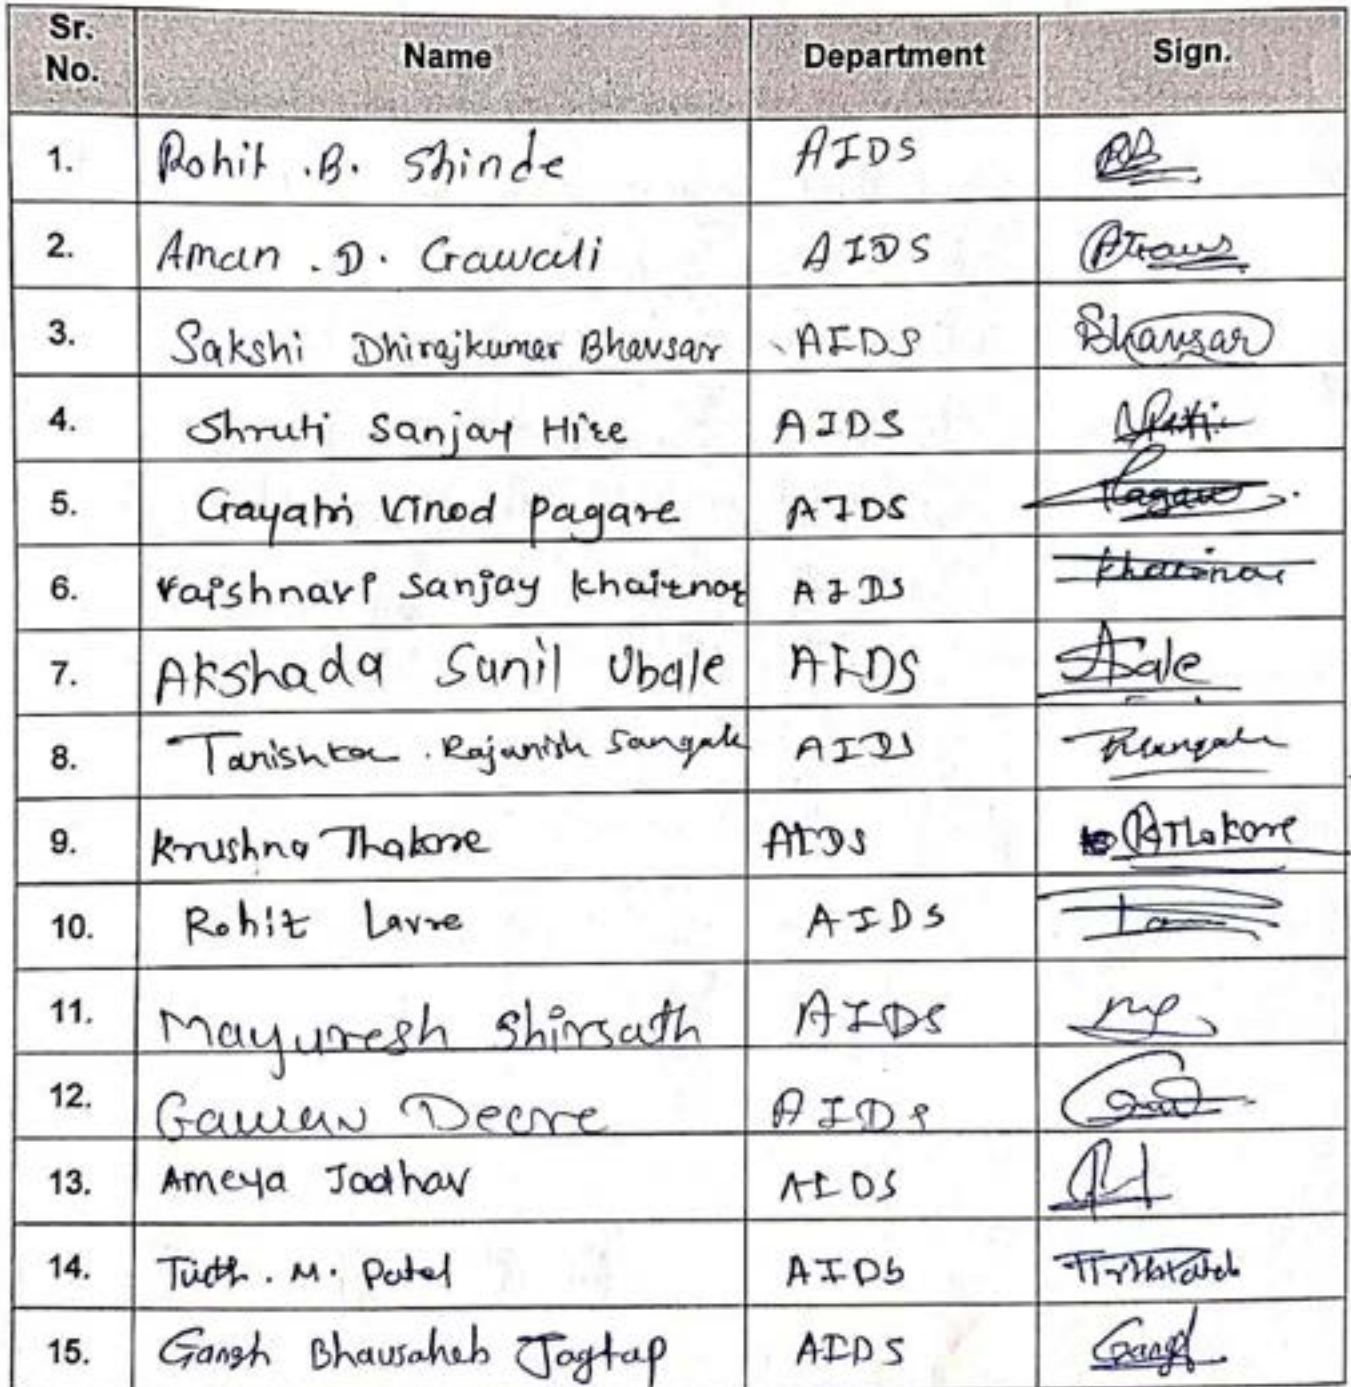 Sr. No. Name Department Sign.
1. Rohit .B. Shinde AIDS
2. Aman .D. Gawali AIDS
3. Sakshi Dhirajkumar Bhavsar AIDS Bhavsar
4. Shruti Sanjay Hire AIDS
5. Gayatri Vinod Pagare AIDS Pagare
6. Vaishnavi Sanjay Khairnar AIDS Khairnar
7. Akshada Sunil Ubale AIDS
8. Tanishka . Rajanish Sangale AIDS
9. Krushna Thakore AIDS KThakore
10. Rohit Lavre AIDS
11. Mayuresh Shirsath AIDS
12. Deore AIDS
13. Ameya Jadhav AIDS
14. M. Patel AIDS
15. Ganesh Bhausaheb Jagtap AIDS